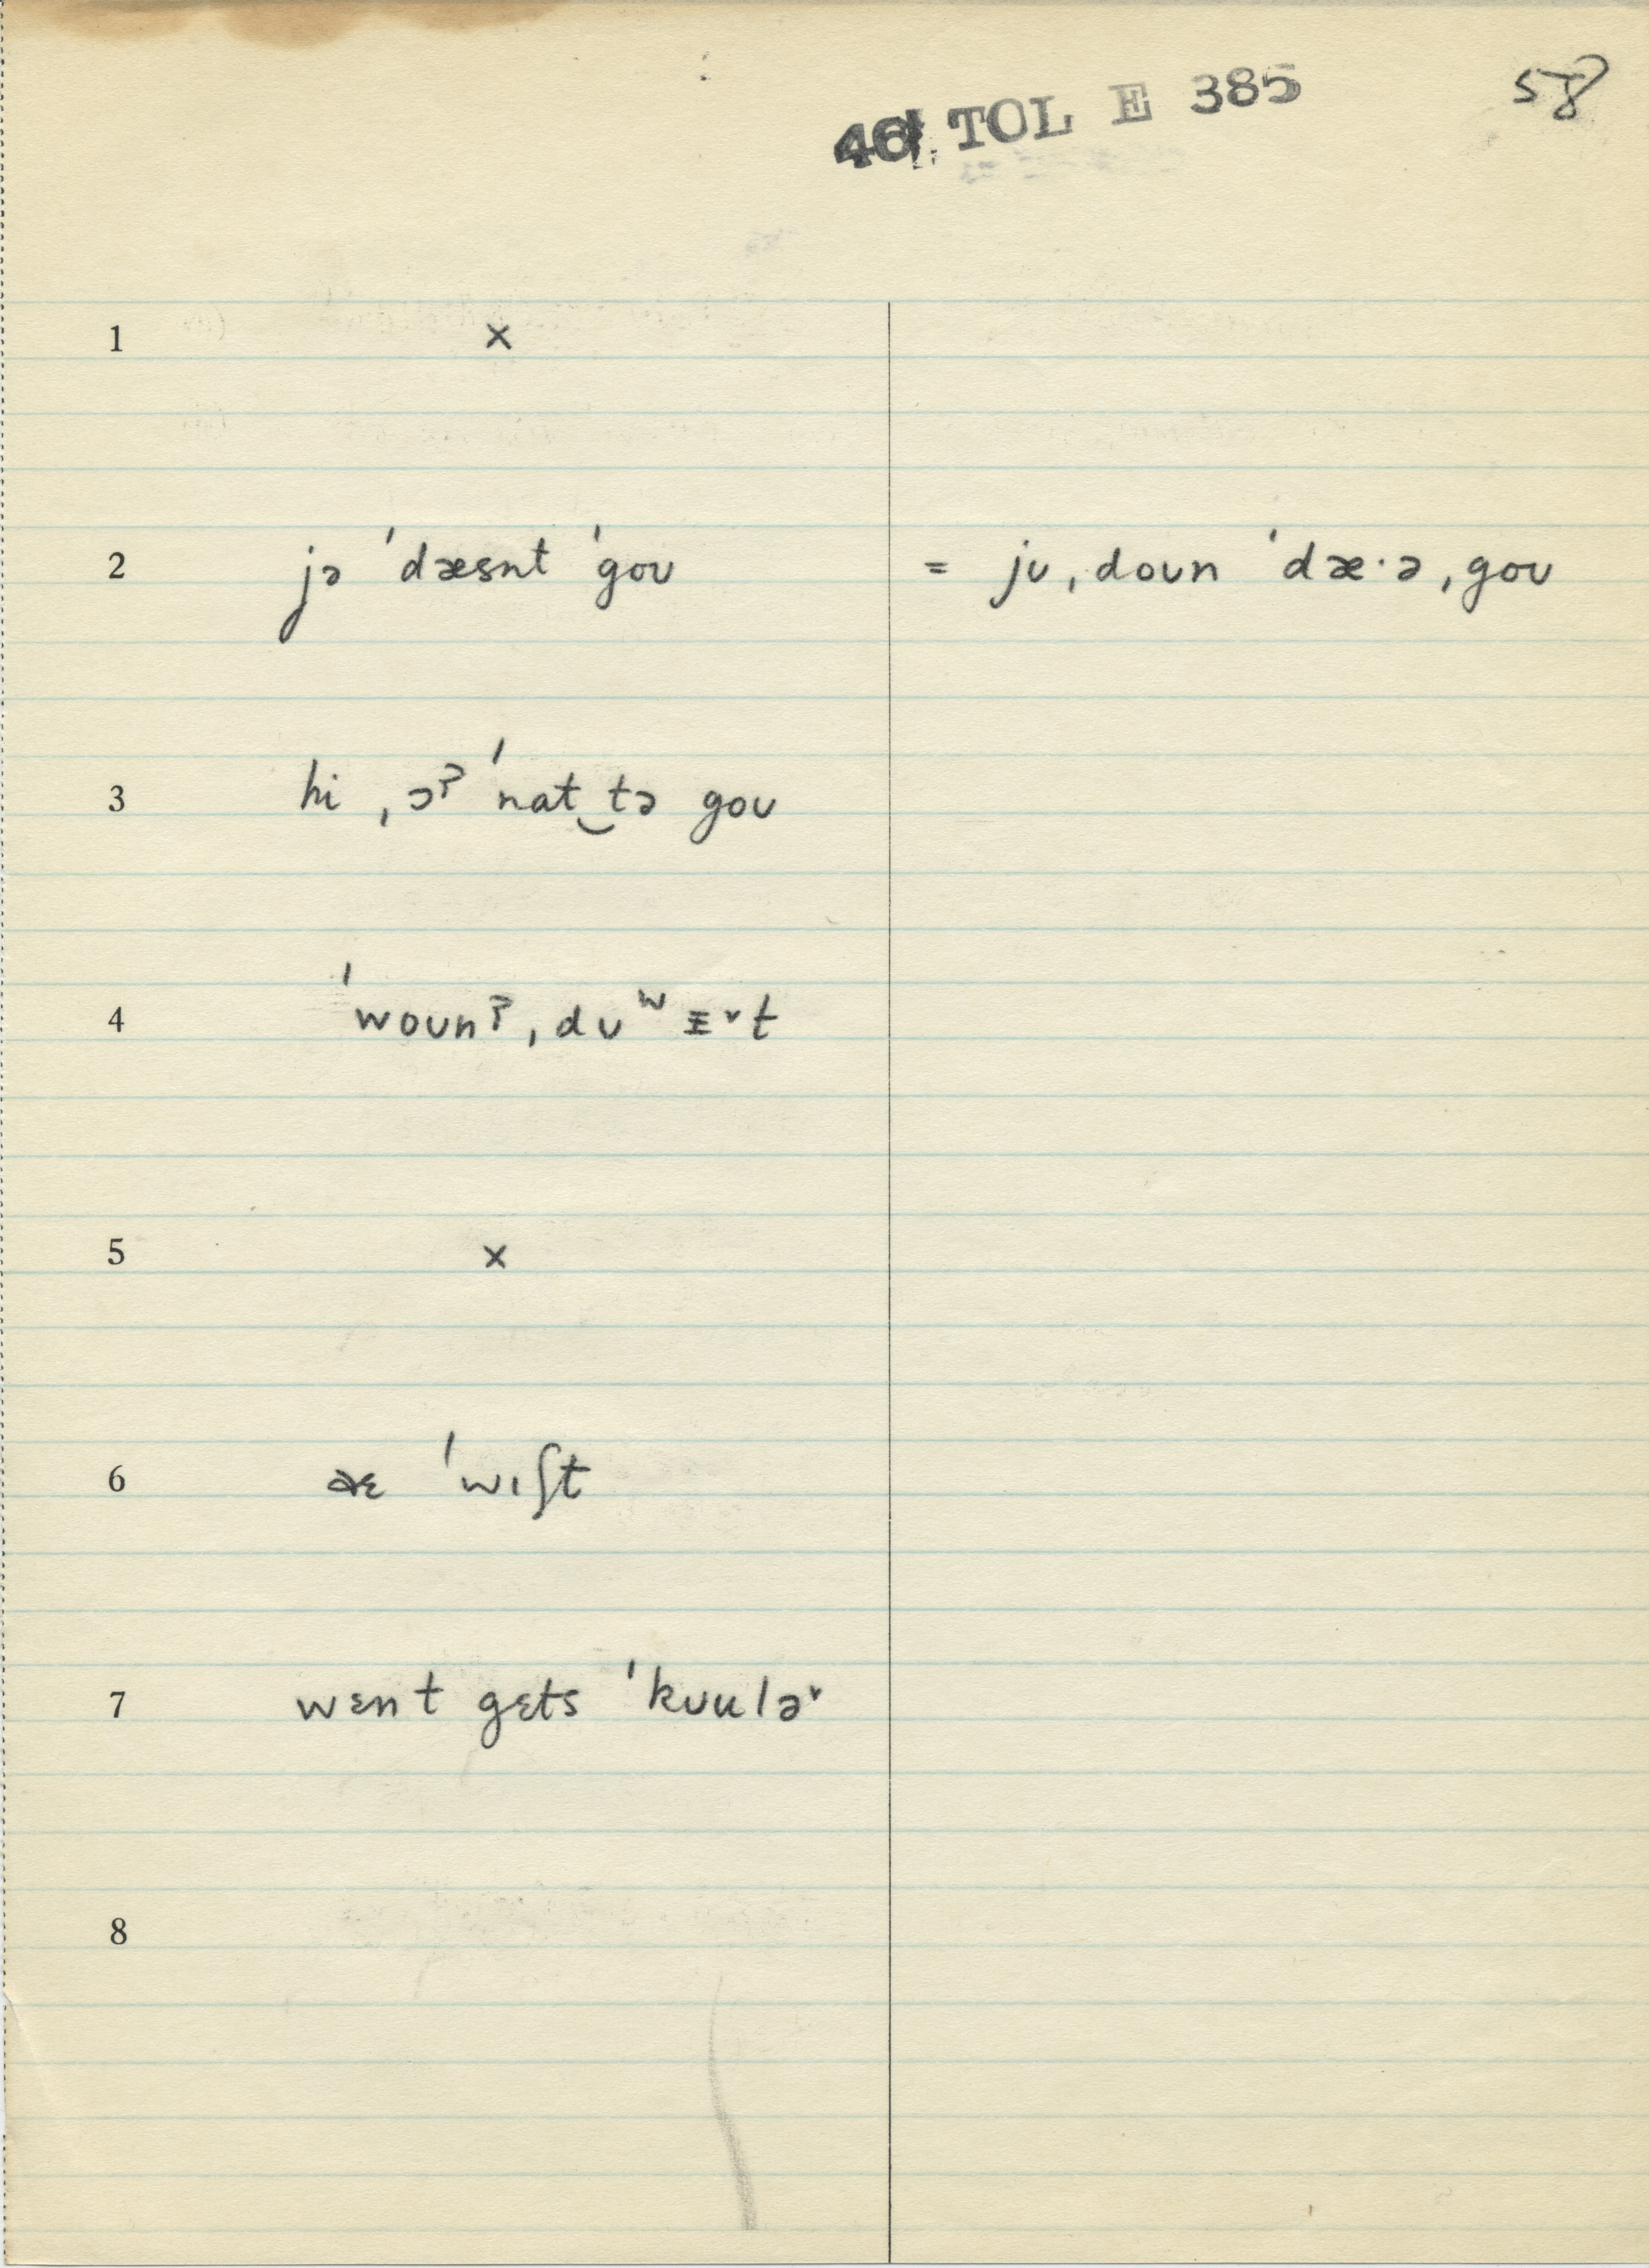 46 TOL E 385 58
1 ×
2 jə ˈdæsnt ˈgoʊ = jʊ ˌdoʊn ˈdæ·ə ˌgoʊ
3 hi ˌɔʔ ˈnat‿tə goʊ
4 ˈwoʊnʔ ˌdʊʷ ɪ˅t
5 ×
6 æɛ ˈwɪʃt
7 wɛnt gɛts ˈkʊulə˞
8